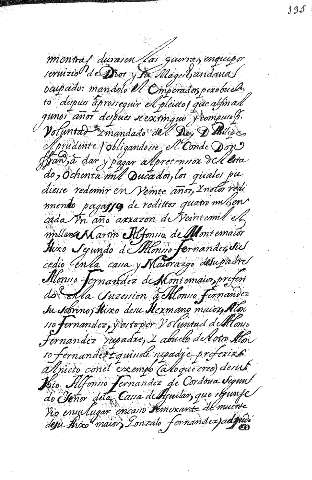 195
mientras durasen las guerras, en que por
servicio de Dios y su Mages.d andava
ocupado: mandolo el Emperador, pero buelto
despues aproseguir el pleito, que algunos
años despues se extinguió y compuso p.r
Voluntad, y mandado del Rey D. Phelipe
el prudente, obligandose el Conde Don
dar, y pagar al precursor del estado,
ochenta mil Ducados, los quales pudiesse
redimir en Veinte años, y no los redimiendo
pagasse de reditos quatro mil en
cada Vn año a razon de Veinte mil el
millar. Martin Alfonso de Montemaior
Hixo segundo de Alfonso Fernandez, sucedio
en la casa, y Maiorazgo de su Padre
Alonso Fernandez de Montemaior, preferido
en la Sucession a Alonso Fernandez
su sobrino, Hixo de su Hermano maior, Alonso
Fernandez, y esto por Voluntad de Alonso
Fernandez su padre, y abuelo de otro Alonso
Fernandez, quiso su padre preferirle
al nieto con el exemplo (a lo que creo) de su
Alfonso Fernandez de Cordova segundo
Señor de la Casa de Aguilar, que
en su lugar en caso semexante de muerte
de su Hixo maior, Gonzalo Fernandez,